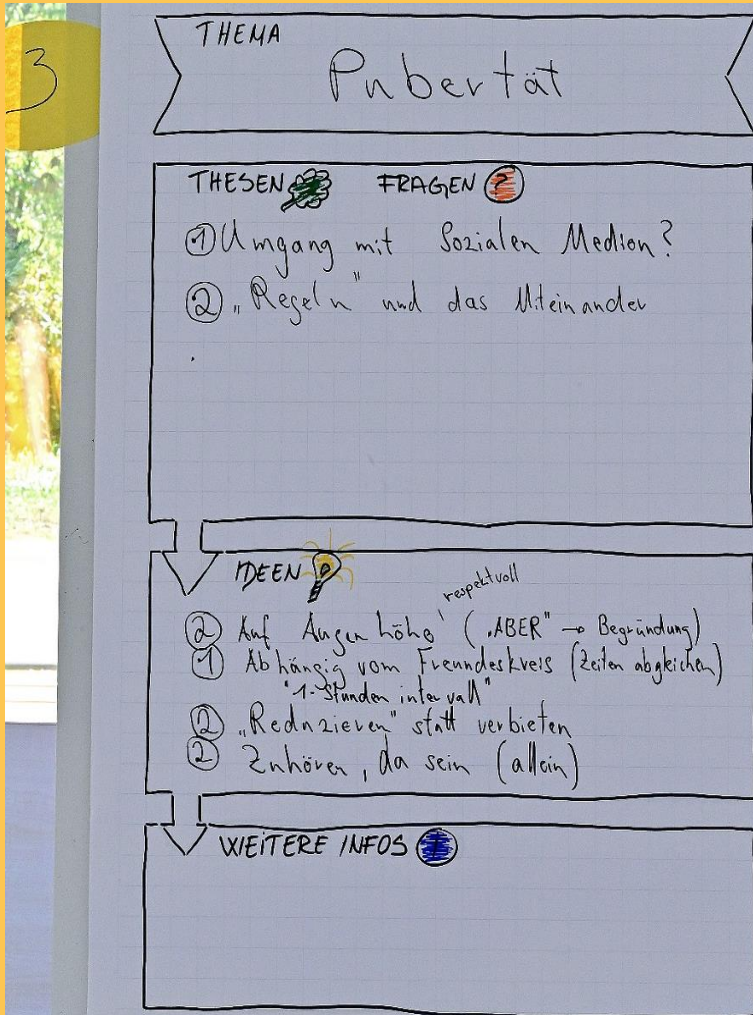 3
THEMA
Pubertät
THESEN FRAGEN ?
① Umgang mit Sozialen Medien?
② „Regeln" und das Miteinander
IDEEN
respektvoll
② Auf Augenhöhe („ABER" → Begründung)
① Abhängig vom Freundeskreis (Zeiten abgleichen)
"1-Stunden intervall"
② „Reduzieren" statt verbieten
② Zuhören, da sein (allein)
WEITERE INFOS